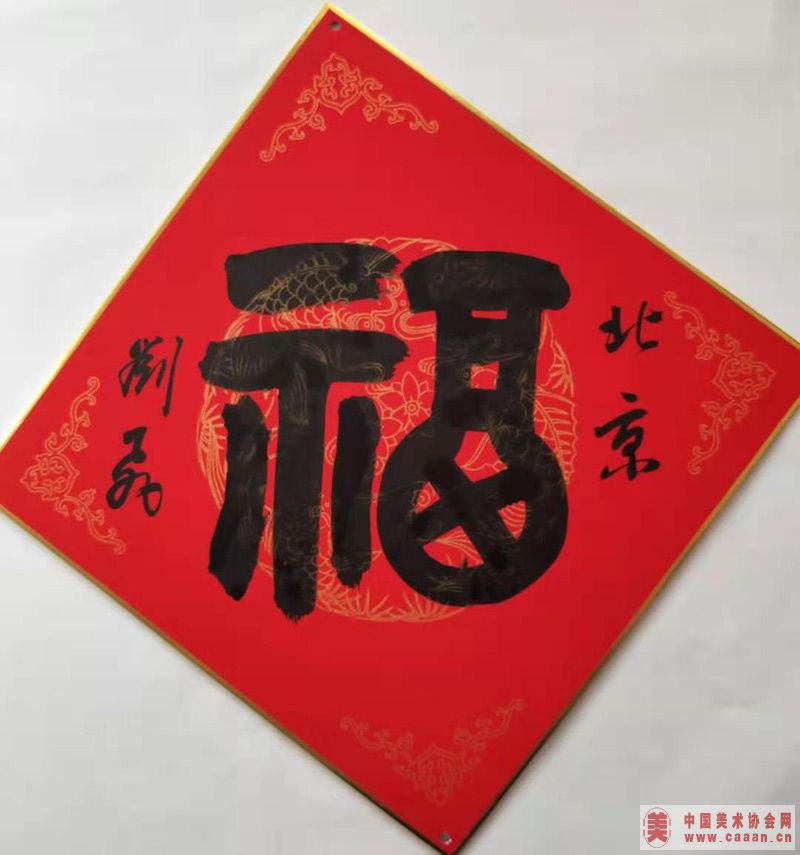 北京
福
劉
中国美术协会网
www.caaan.cn